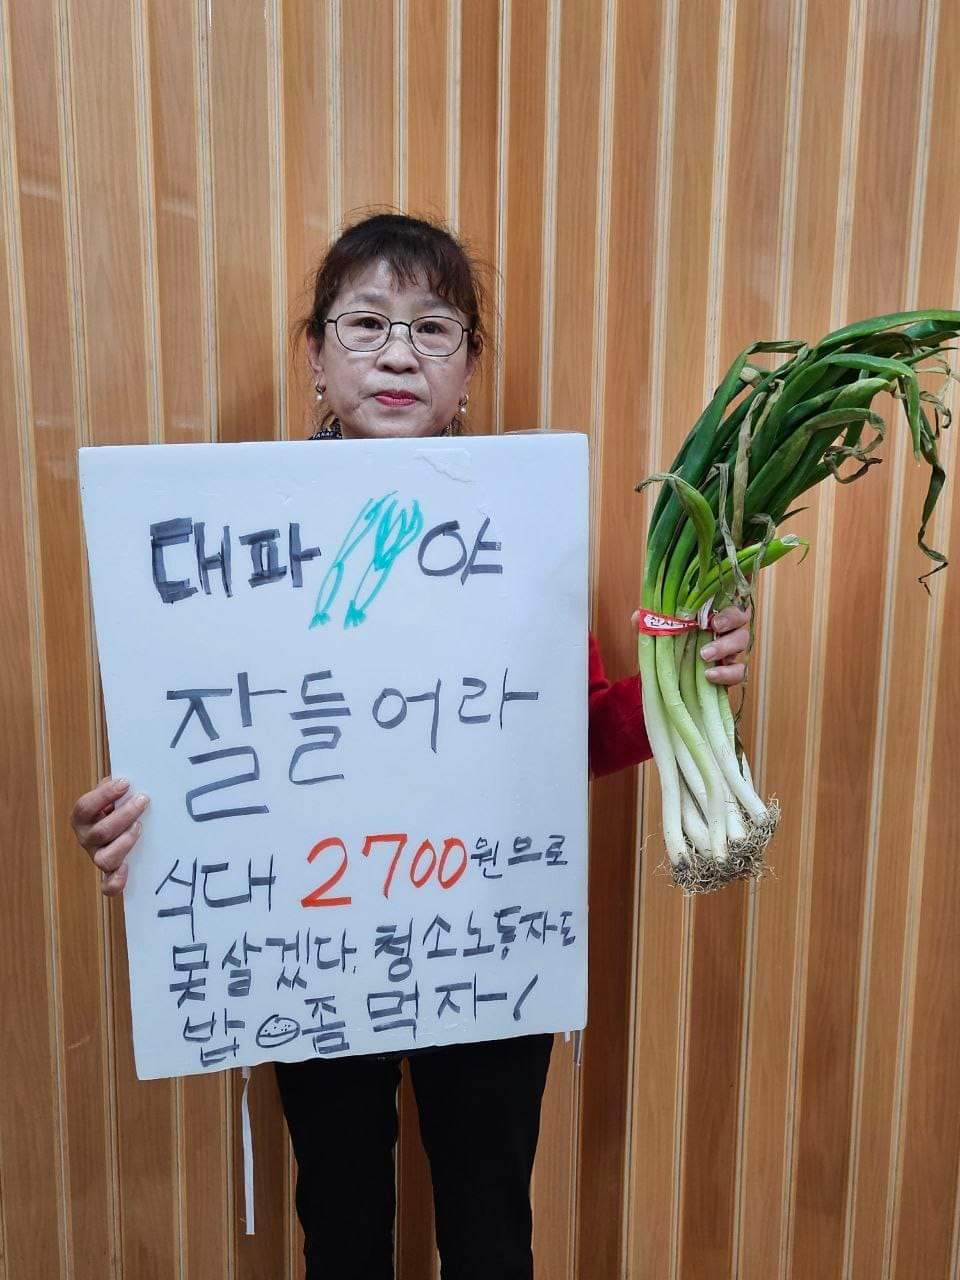 대파야
잘들어라
식대 2700원으로
못살겠다. 청소노동자도
밥좀 먹자!